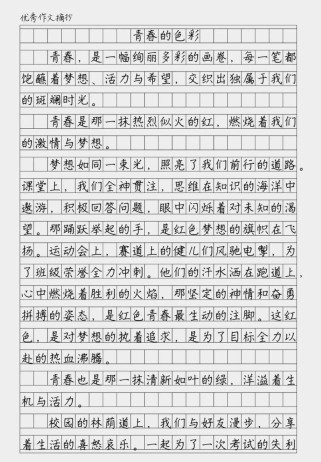 优秀作文摘抄
青春的色彩
青春，是一幅绚丽多彩的画卷，每一笔都
饱蘸着梦想、活力与希望，交织出独属于我们
的斑斓时光。
青春是那一抹热烈似火的红，燃烧着我们
的激情与梦想。
梦想如同一束光，照亮了我们前行的道路。
课堂上，我们全神贯注，思维在知识的海洋中
遨游，积极回答问题，眼中闪烁着对未知的渴
望。那踊跃举起的手，是红色梦想的旗帜在飞
扬。运动会上，赛道上的健儿们风驰电掣，为
了班级荣誉全力冲刺。他们的汗水洒在跑道上，
心中燃烧着胜利的火焰，那坚定的神情和奋勇
拼搏的姿态，是红色青春最生动的注脚。这红
色，是对梦想的执着追求，是为了目标全力以
赴的热血沸腾。
青春也是那一抹清新如叶的绿，洋溢着生
机与活力。
校园的林荫道上，我们与好友漫步，分享
着生活的喜怒哀乐。一起为了一次考试的失利